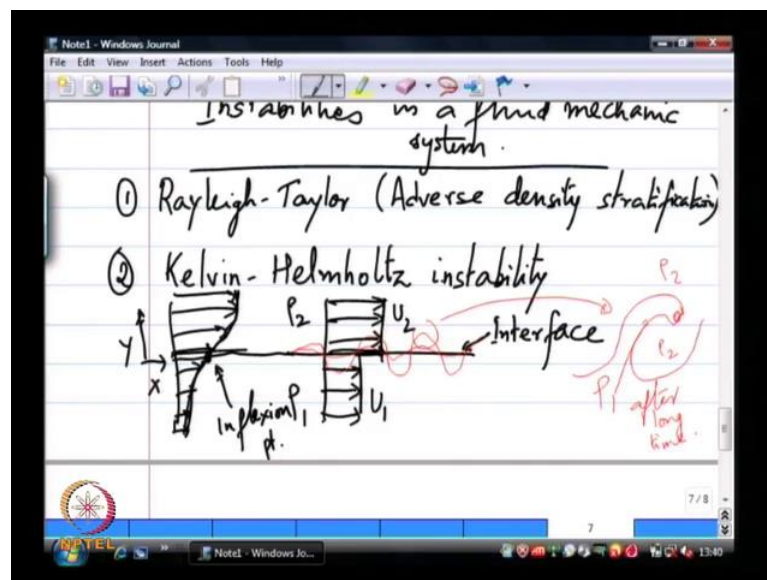 Note1 - Windows Journal
File Edit View Insert Actions Tools Help
Instabilities in a fluid mechanic
system.
① Rayleigh-Taylor (Adverse density stratification)
② Kelvin-Helmholtz instability
ρ2 U2 Interface ρ2
Y
X
ρ2
Inflexion pt.
ρ1 U1
ρ1 after long time.
7/8
7
NPTEL
Note1 - Windows Jo...
13:40